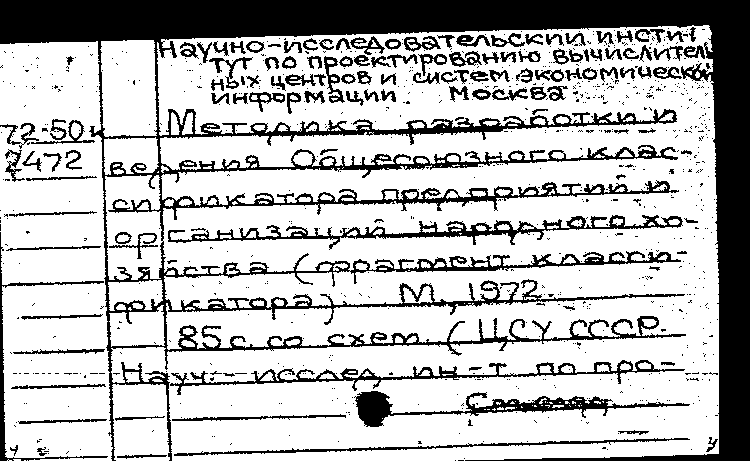 Научно-исследовательский инсти-
тут по проектированию вычислитель
ных центров и систем экономической
информации. Москва.
72-50к Методика разработки и
2472 ведения Общесоюзного клас-
сификатора предприятий и
организаций народного хо-
зяйства (фрагмент класси-
фикатора). М., 1972.
85с. со схем. (ЦСУ СССР.
Науч.-исслед. ин-т по про-